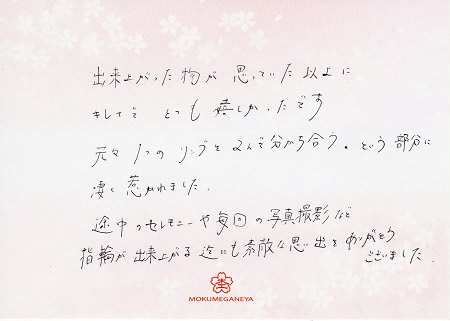 出来上がった物が思っていた以上に
キレイで とっても嬉しかったです
元々1つのリングを2人で分かち合う。という部分に
凄く惹かれました.
途中のセレモニーや毎回の写真撮影など
指輪が出来上がる迄にも素敵な思い出をありがとう
ございました.
MOKUMEGANEYA